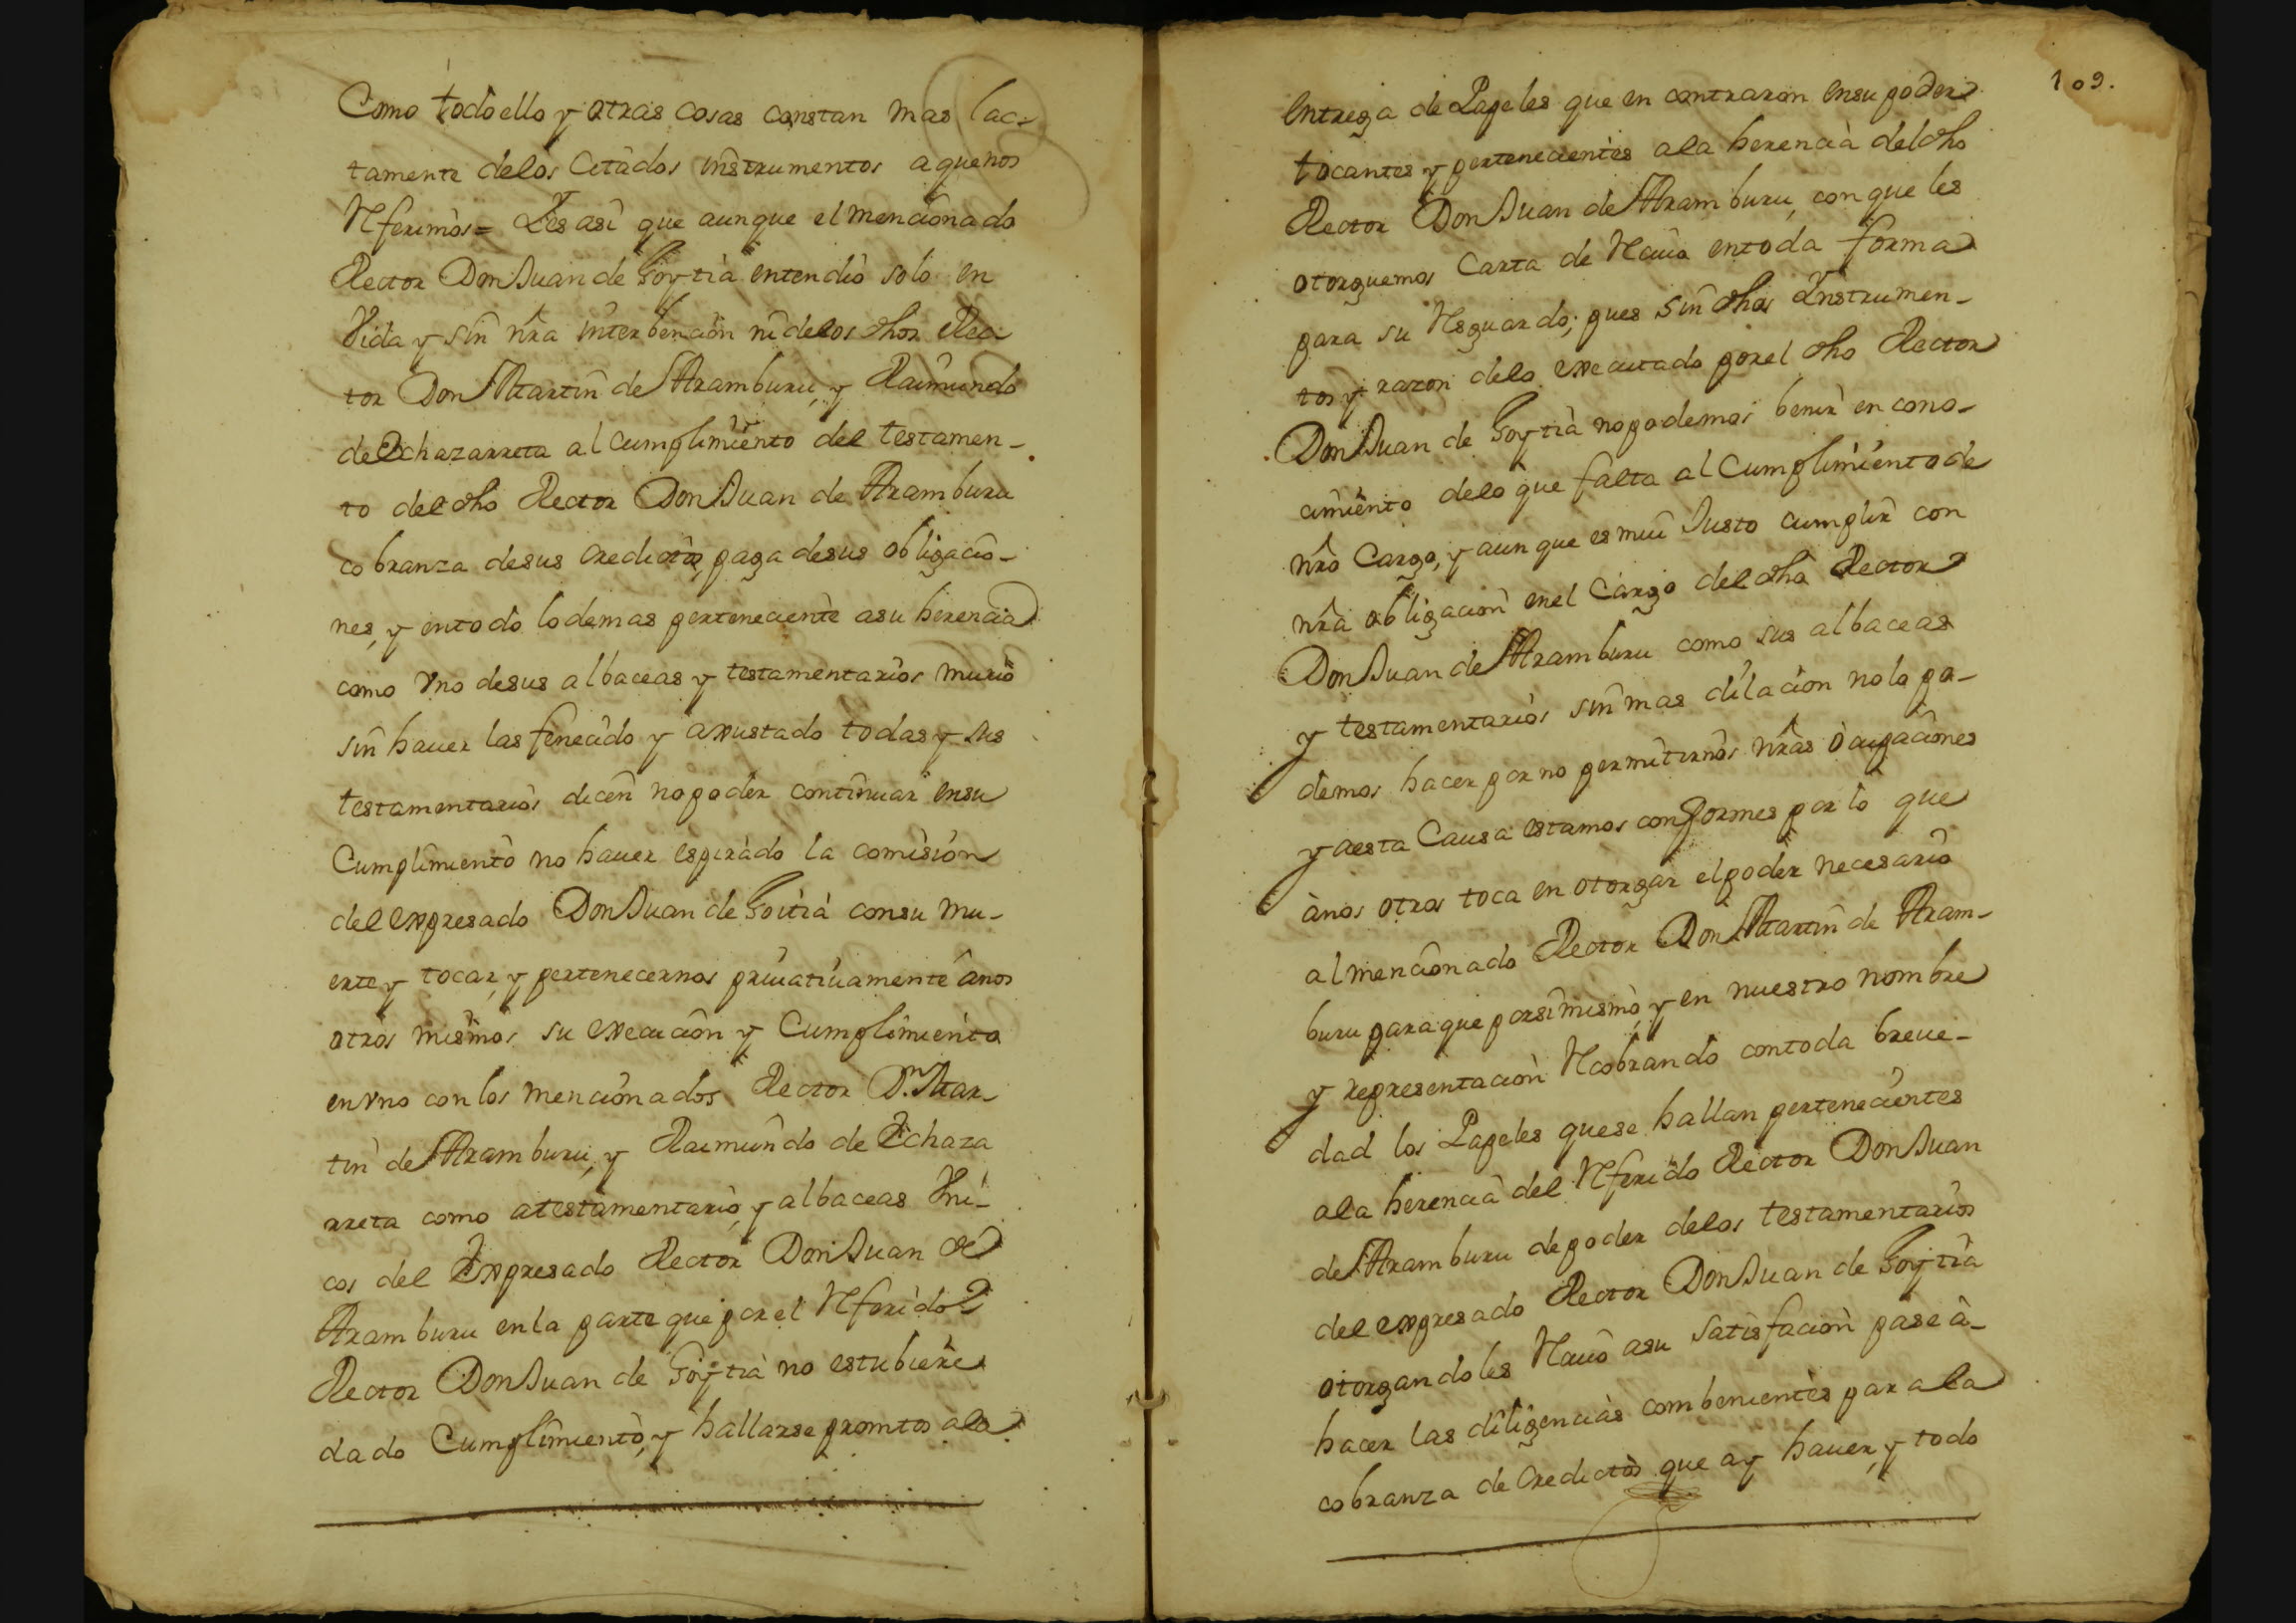 Como todo ello y otras cosas constan mas lac-
tamente delos Citàdos instrumentos aquenos
Referimòs = Yes asi que aunque el mencionado
Rector Don Juan de Goytia entendio solo en
Vida y sin nra interbencion ni delos dhos Rec
tor Don Martin de Aramburu, y Raimundo
de Echazarreta al cumplimiento del testamen-
to del dho Rector Don Juan de Aramburu
cobranza desus creditos, paga desus obligacio-
nes, y entodo lodemas perteneciente asu herencia
como Vno desus albaceas y testamentarios murio
sin hauer las fenecido y axustado todas y sus
testamentarios dicen nopoder continuar ensu
Cumplimiento no hauer espirado la comision
del expresado Don Juan de Goitia consu mu-
erte y tocar, y pertenecernos priuatiuamente ânos
otros mismos su execucion y Cumplimiento
envno con los mencionados Rector Dn. Mar-
tin de Aramburu, y Raimundo de Echaza
rreta como atestamentario, y albaceas Vni-
cos del Expresado Rector Don Juan de
Aramburu enla parte que por el Referido
Rector Don Juan de Goytia no estubiere
dado Cumplimiento, y hallarse promtos ala
109.
entrega de Papeles que en contraron ensu poder
tocantes y pertenecientes ala herencia deldho
Rector Don Juan de Aramburu, con que les
otorguemos Carta de Reciuo entoda forma
para su Resguardo; pues sin dhos Instrumen-
tos y razon delo executado porel dho Rector
Don Juan de Goytia nopodemos benir en cono-
cimiento delo que falta al Cumplimiento de
nro Cargo, y aun que es mui Justo cumplir con
nra obligacion enel Cargo del dho Rector
Don Juan de Aramburu como sus albaceas
y testamentarios sin mas dilacion nolo po-
demos hacer por no permitirnos nras òcupaciones
y aesta Causa estamos conformes por lo que
ànos otros toca en otorgar elpoder necesario
almencionado Rector Don Martin de Aram-
buru paraque porsimismo, y en nuestro nombre
y representacion Recobrando contoda breue-
dad los Papeles quese hallan pertenecientes
ala herencia del Referido Rector Don Juan
de Aramburu depoder delos testamentarios
del expresado Rector Don Juan de Goytia
otorgandoles Reciuo asu satisfacion pase â-
hacer las diligencias combenientes para la
cobranza de Creditos que ay hauer, y todo